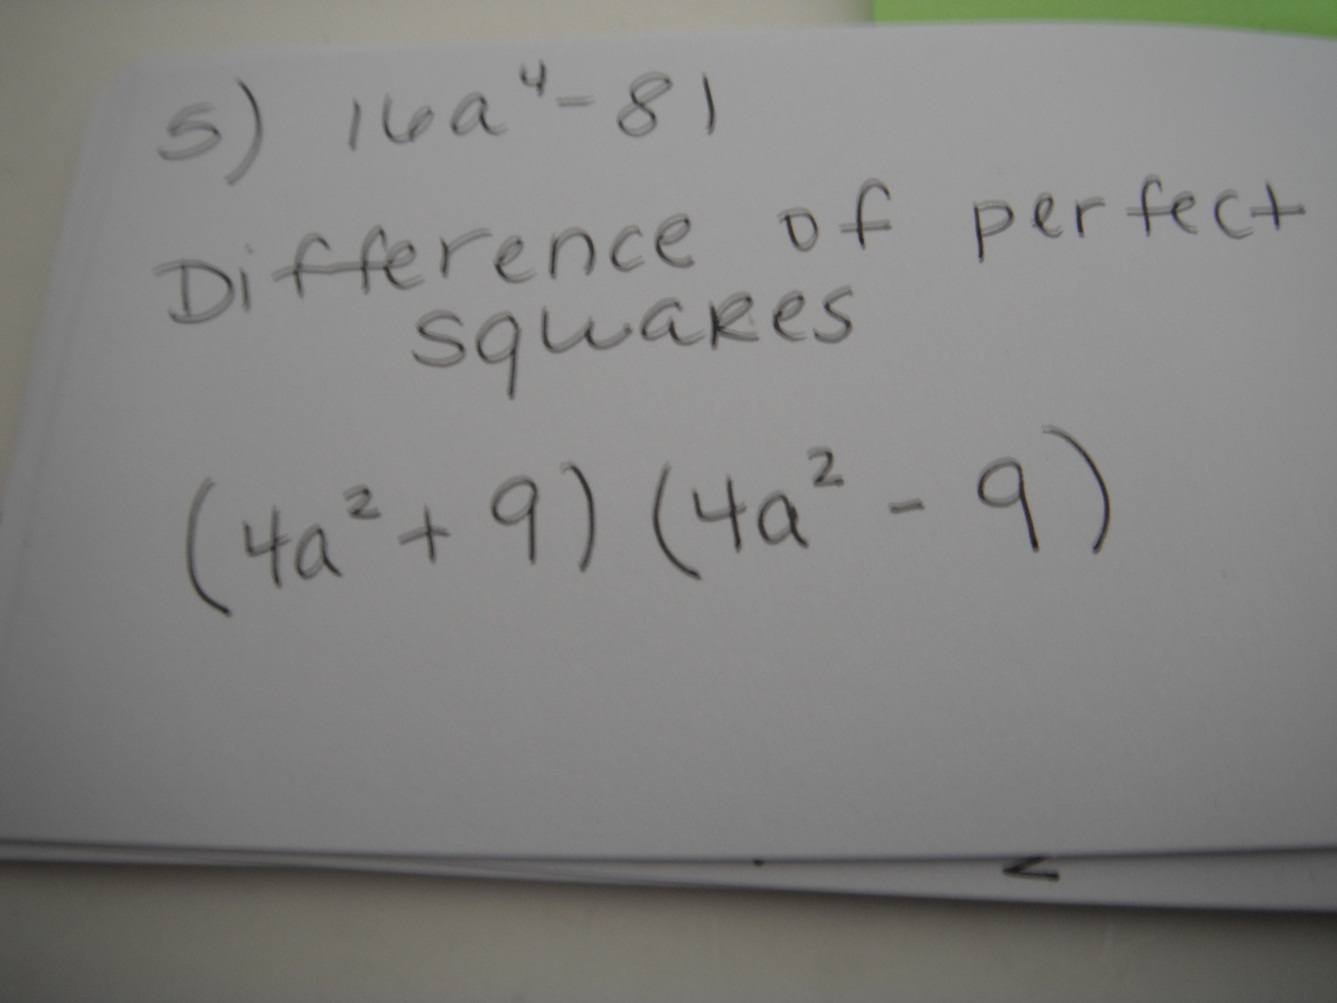 5) 16a⁴-81
Difference of perfect
squares
(4a² + 9) (4a² - 9)